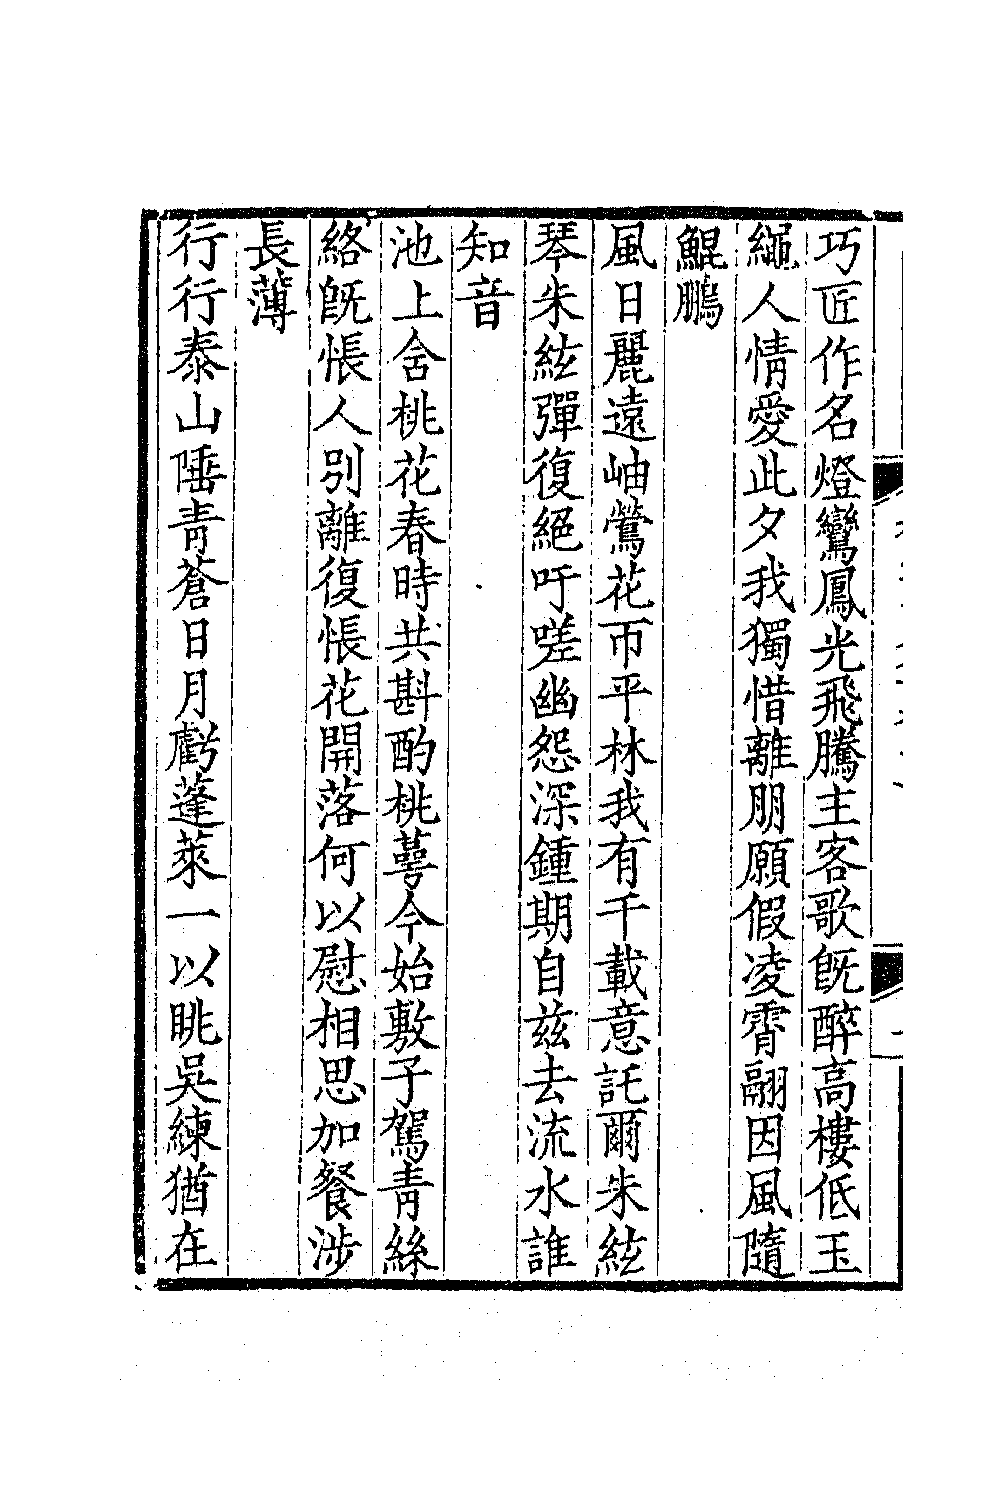 巧匠作名燈鸞鳳光飛騰主客歌旣醉高樓低玉
繩人情愛此夕我獨惜離朋願假凌霄翮因風隨
鯤鵬
風日麗遠岫鶯花帀平林我有千載意託爾朱絃
琴朱絃彈復絕吁嗟幽怨深鍾期自兹去流水誰
知音
池上舍桃花春時共斟酌桃蕚今始敷子駕青絲
絡旣悵人別離復悵花開落何以慰相思加餐涉
長薄
行行泰山陲青蒼日月虧蓬萊一以眺吳練猶在